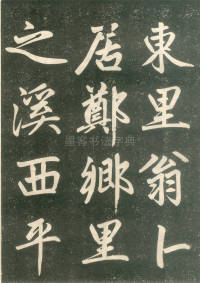 東里翁卜
居鄭鄉里
之溪西平
墨客书法字典